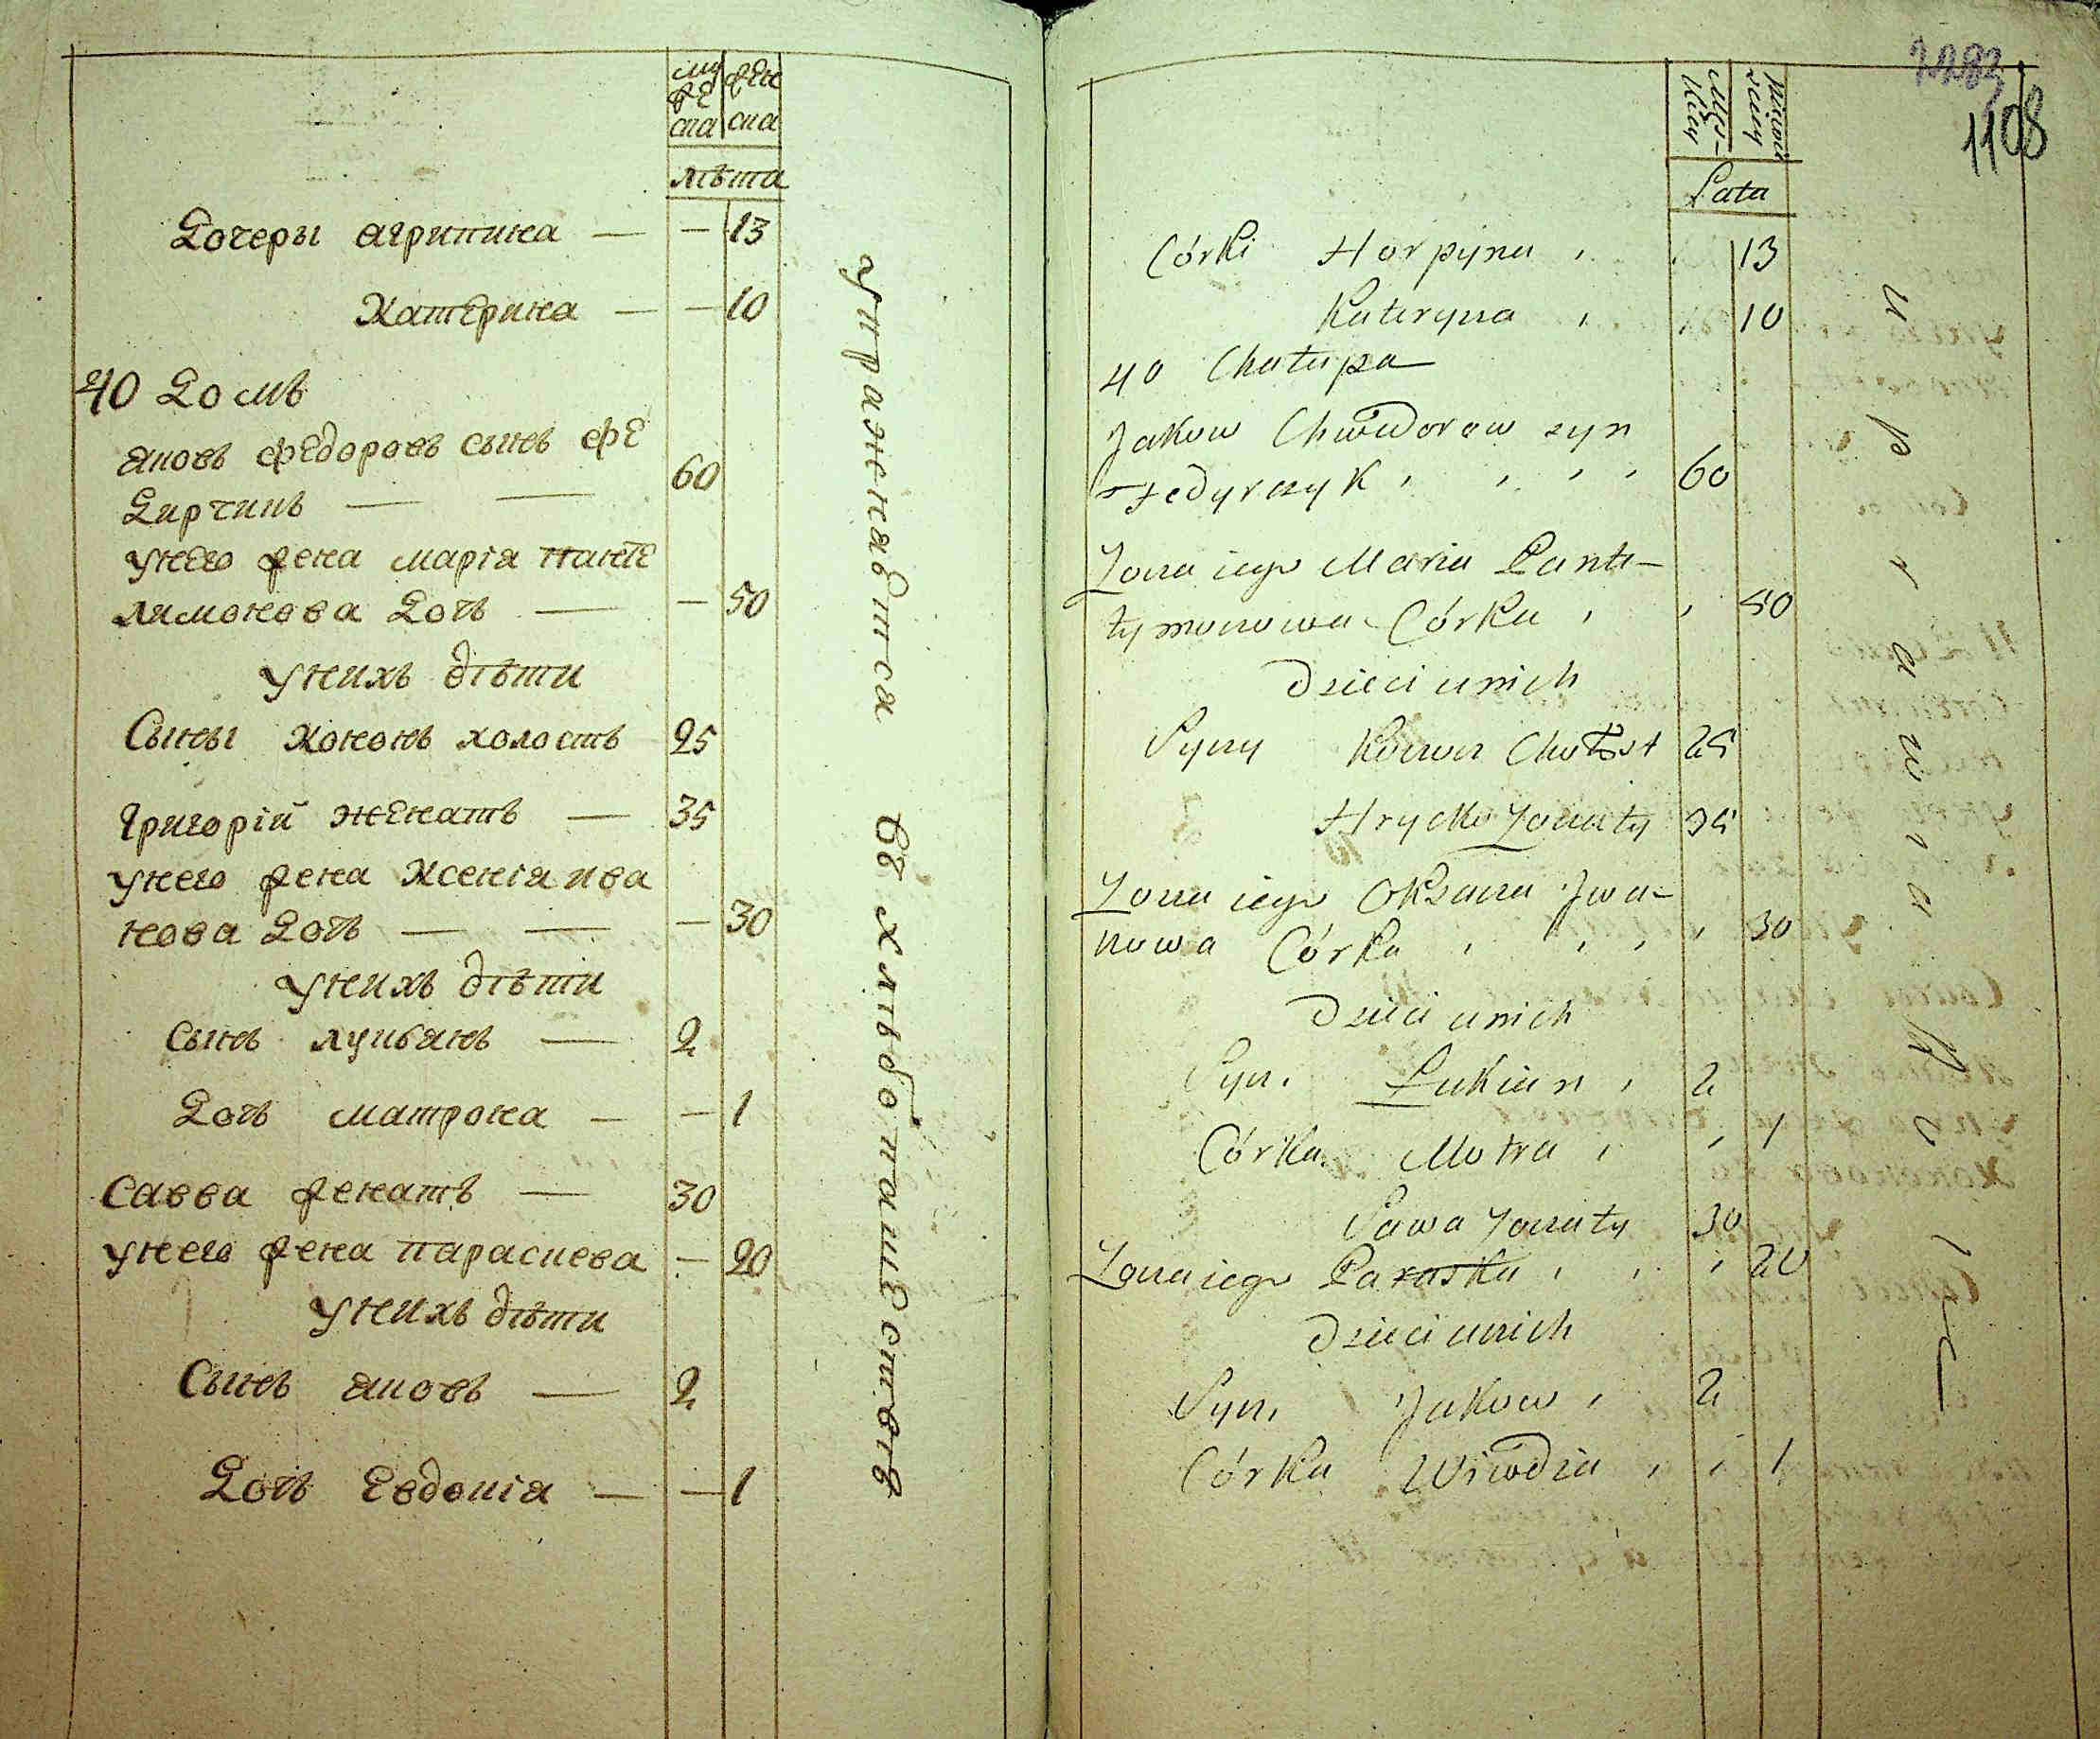 муже ска
жен ска
лѣта
Дочеры агрипина — — 13
Катерина — — 10
40 Домъ
яковъ федоровъ сынъ фе
дирчикъ — — 60
унего жена марія панте
лимонова дочь — — 50
унихъ дѣти
Сыны кононъ холостъ 25
Григорій женатъ — 35
унего жена ксенія ива
нова дочь — — — 30
унихъ дѣти
Сынъ лукьянъ — 2
Дочь матрона — — 1
Савва женатъ — 30
унего жена параскева — 20
унихъ дѣти
Сынъ яковъ — 2
Дочь Евдокія — — 1
упражнявтся въ хлѣбопашествѣ
1108
Męs-
kiey
Lata
Córki Horpyna 13
Kateryna 10
40 Chałupa
Jakow Chwedorow syn
Fedyrczyk 60
Żona iego Maria Pante-
łymonowa Córka 50
Dzieci unich
Syny Konon Chołost 25
Hryćko Żonaty 35
Żona iego Oksana Iwa-
nowa Córka 30
Dzieci unich
Syn. Łukian 2
Córka. Motra 1
Sawa Żonaty 30
Żona iego Paraska 20
Dzieci unich
Syn. Jakow 2
Córka Wiwdia 1